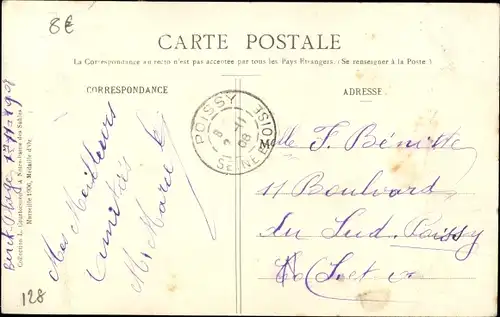 8€
CARTE POSTALE
La Correspondance au recto n'est pas acceptée par tous les Pays Etrangers. (Se renseigner à la Poste)
CORRESPONDANCE
ADRESSE
POISSY
SEINE ET OISE
Berck Plage
Collection L. Courbonneau A Notre-Dame des Sables
Marseille 1900, Médaille d'Or
Mes Meilleurs
Amitiés
M. Marcel
M
F. Bénitte
11 Boulevard
du Sud Poissy
S et O
128